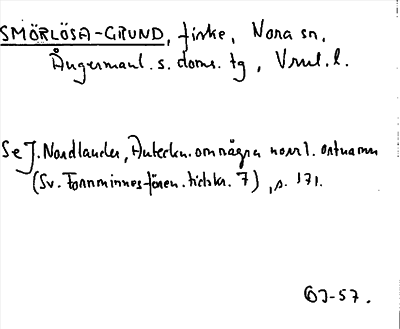 SMÖRLÖSA-GRUND, fiske, Nora sn,
Ångermanl. s. doms. tg, Vnrl. l.
Se J. Nordlander, Anteckn. om några norrl. ortnamn
(Sv. Fornminnesfören. tidskr. 7), s. 171.
OJ-57.